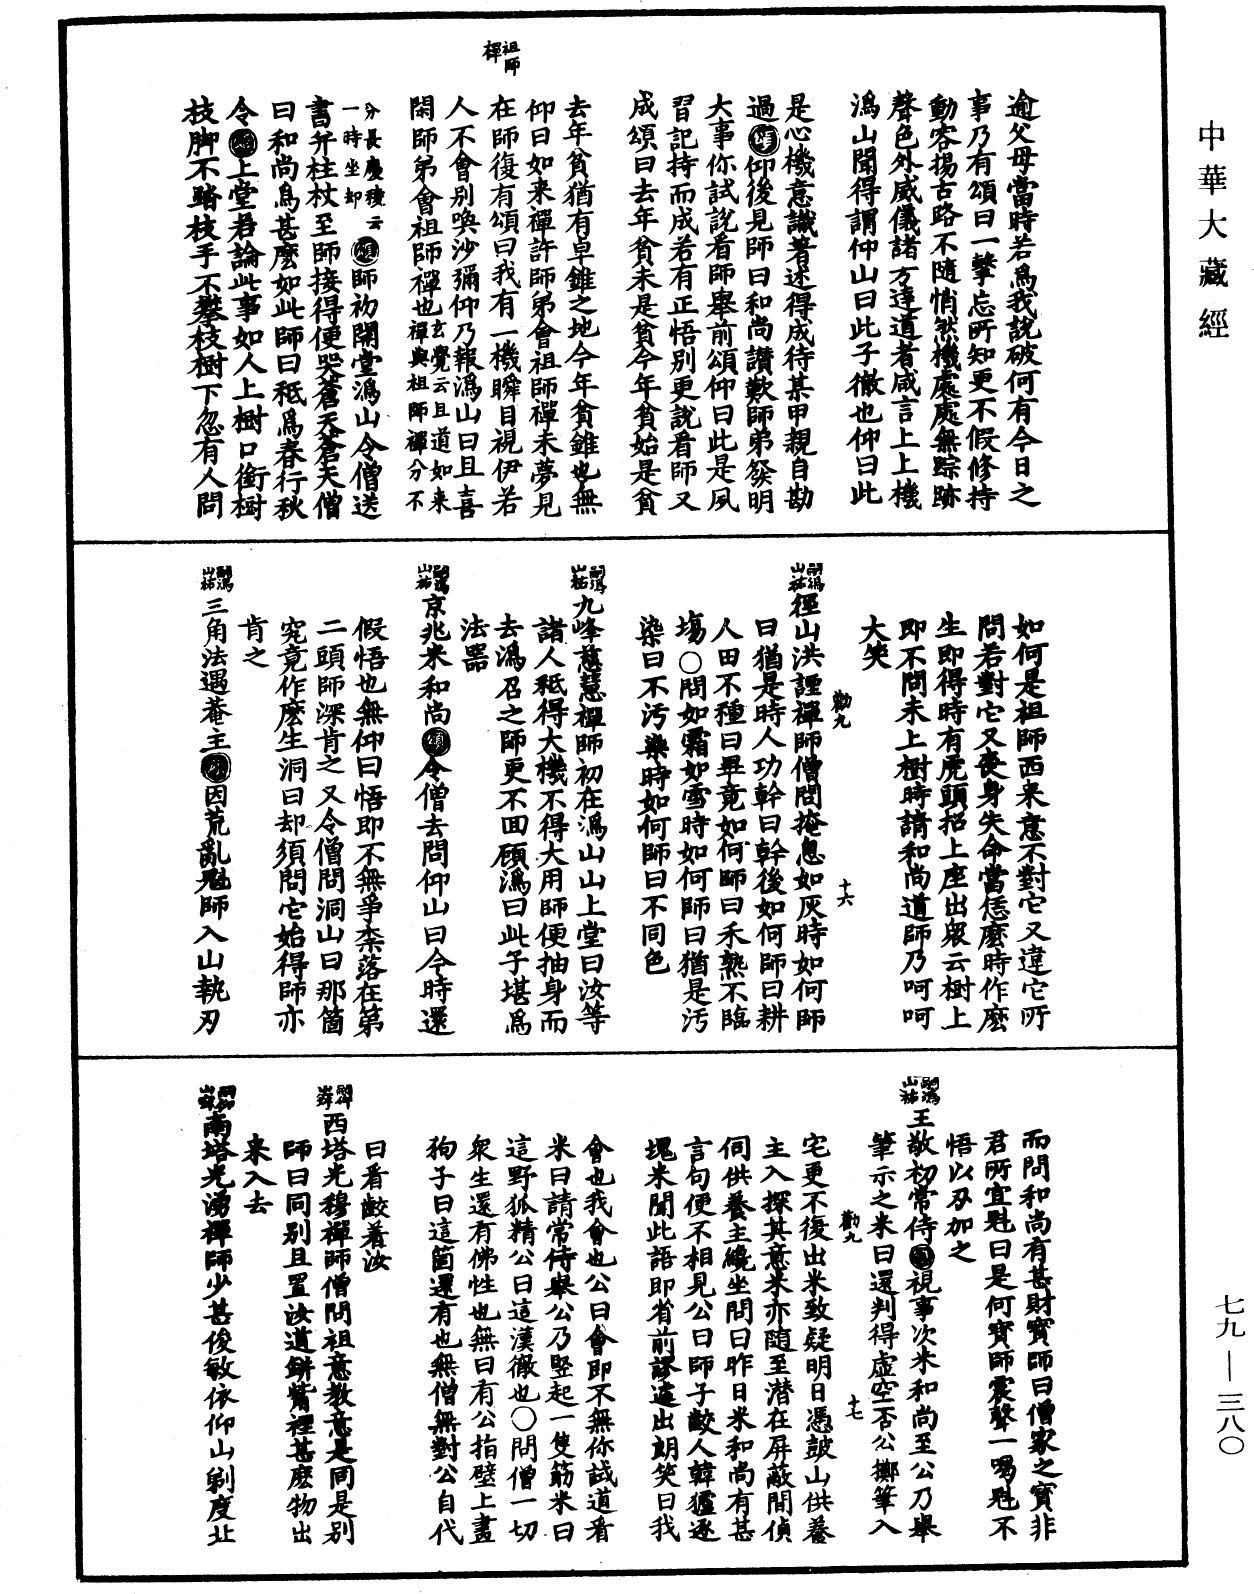 中華大藏經
七九—三八〇
逾父母當時若為我說破何有今日之
事乃有頌曰一擊忘所知更不假修持
動容揚古路不隨悄然機處處無踪跡
聲色外威儀諸方達道者咸言上上機
溈山聞得謂仰山曰此子徹也仰曰此
是心機意識著述得成待某甲親自勘
過仰後見師曰和尚讚歎師弟發明
大事你試說看師舉前頌仰曰此是夙
習記持而成若有正悟別更說看師又
成頌曰去年貧未是貧今年貧始是貧
去年貧猶有卓錐之地今年貧錐也無
仰曰如来禪許師弟會祖師禪未夢見
祖師禪
在師復有頌曰我有一機瞬目視伊若
人不會别喚沙彌仰乃報溈山曰且喜
閑師弟會祖師禪也玄覺云且道如来禪與祖師禪分不
分長慶稜云一時坐却頌師初開堂溈山令僧送
書并柱杖至師接得便哭蒼天蒼天僧
曰和尚為甚麼如此師曰秖為春行秋
令頌上堂若論此事如人上樹口銜樹
枝脚不踏枝手不攀枝樹下忽有人問
如何是祖師西来意不對它又違它所
問若對它又喪身失命當恁麼時作麼
生即得時有虎頭招上座出眾云樹上
即不問未上樹時請和尚道師乃呵呵
大笑
勸九
十六
嗣溈山祐徑山洪諲禪師僧問掩息如灰時如何師
曰猶是時人功幹曰幹後如何師曰耕
人田不種曰畢竟如何師曰禾熟不臨
塲〇問如霜如雪時如何師曰猶是污
染曰不污染時如何師曰不同色
嗣溈山祐九峰慈慧禪師初在溈山山上堂曰汝等
諸人秖得大機不得大用師便抽身而
去溈召之師更不回顧溈曰此子堪為
法器
嗣溈山祐京兆米和尚頌令僧去問仰山曰今時還
假悟也無仰曰悟即不無爭柰落在第
二頭師深肯之又令僧問洞山曰那箇
究竟作麼生洞曰却須問它始得師亦
肯之
嗣溈山祐三角法遇菴主因荒亂魁師入山執刃
而問和尚有甚財寶師曰僧家之寶非
君所宜魁曰是何寶師震聲一喝魁不
悟以刃加之
嗣溈山祐王敬初常侍視事次米和尚至公乃舉
筆示之米曰還判得虛空否公擲筆入
勸九
十七
宅更不復出米致疑明日憑皷山供養
主入探其意米亦隨至潜在屏蔽間偵
伺供養主纔坐問曰昨日米和尚有甚
言句便不相見公曰師子齩人韓獹逐
塊米聞此語即省前謬遽出朗笑曰我
會也我會也公曰會即不無你試道看
米曰請常侍舉公乃竪起一隻筯米曰
這野狐精公曰這漢徹也〇問僧一切
眾生還有佛性也無曰有公指壁上畫
狗子曰這箇還有也無僧無對公自代
曰看齩着汝
西塔光穆禪師僧問祖意教意是同是别
師曰同别且置汝道缾觜裡甚麽物出
来入去
南塔光湧禪師少甚俊敏依仰山剃度北